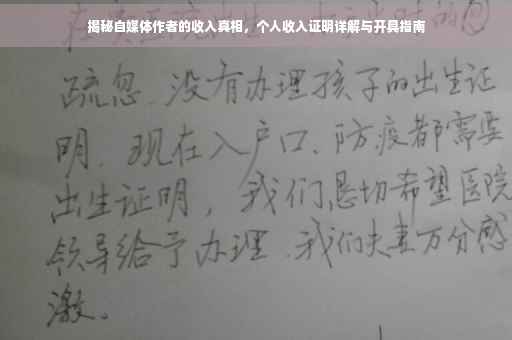 揭秘自媒体作者的收入真相，个人收入证明详解与开具指南
疏忽、没有办理孩子的出生证
明、现在入户口、防疫都需要
出生证明，我们恳切希望医院
领导给予办理、我们夫妻万分感
激。